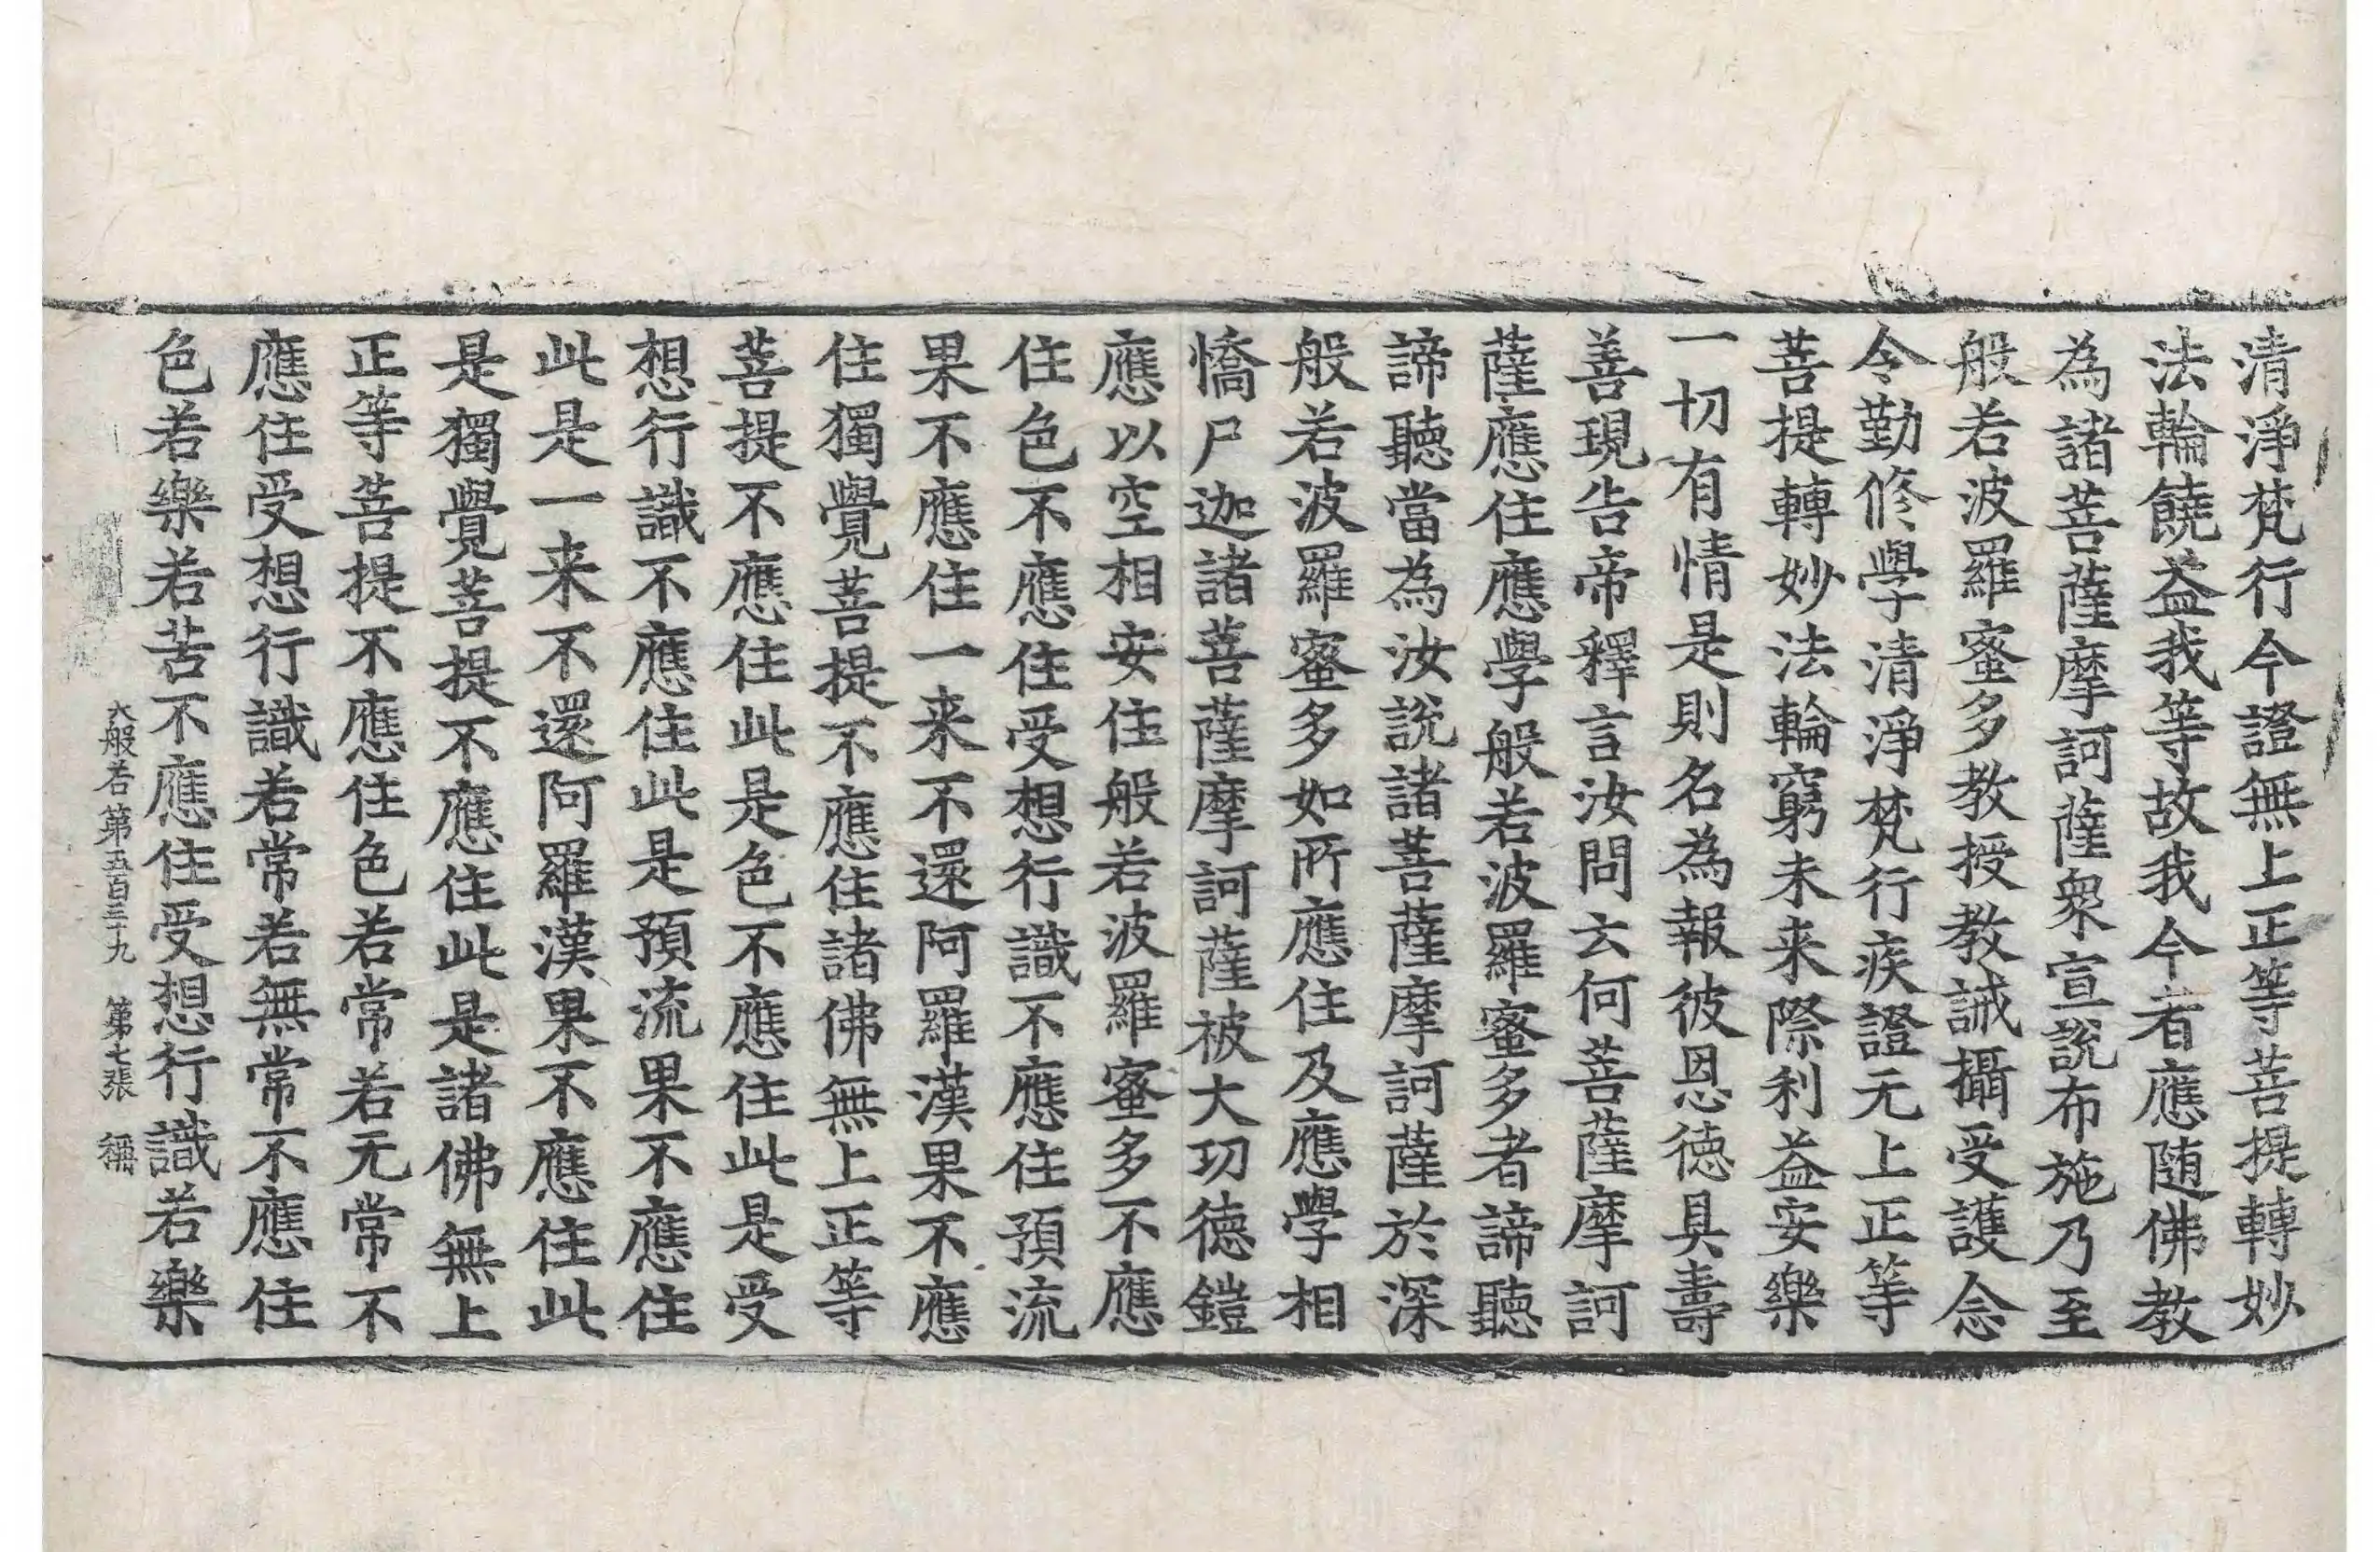 清淨梵行今證無上正等菩提轉妙
法輪饒益我等故我今者應随佛教
為諸菩薩摩訶薩衆宣說布施乃至
般若波羅蜜多教授教誡攝受護念
令勤修學清淨梵行疾證无上正等
菩提轉妙法輪窮未来際利益安樂
一切有情是則名為報彼恩德具壽
善現告帝釋言汝問云何菩薩摩訶
薩應住應學般若波羅蜜多者諦聽
諦聽當為汝說諸菩薩摩訶薩於深
般若波羅蜜多如所應住及應學相
憍尸迦諸菩薩摩訶薩被大功德鎧
應以空相安住般若波羅蜜多不應
住色不應住受想行識不應住預流
果不應住一来不還阿羅漢果不應
住獨覺菩提不應住諸佛無上正等
菩提不應住此是色不應住此是受
想行識不應住此是預流果不應住
此是一来不還阿羅漢果不應住此
是獨覺菩提不應住此是諸佛無上
正等菩提不應住色若常若无常不
應住受想行識若常若無常不應住
色若樂若苦不應住受想行識若樂
大般若第五百三十九 第七張 稱